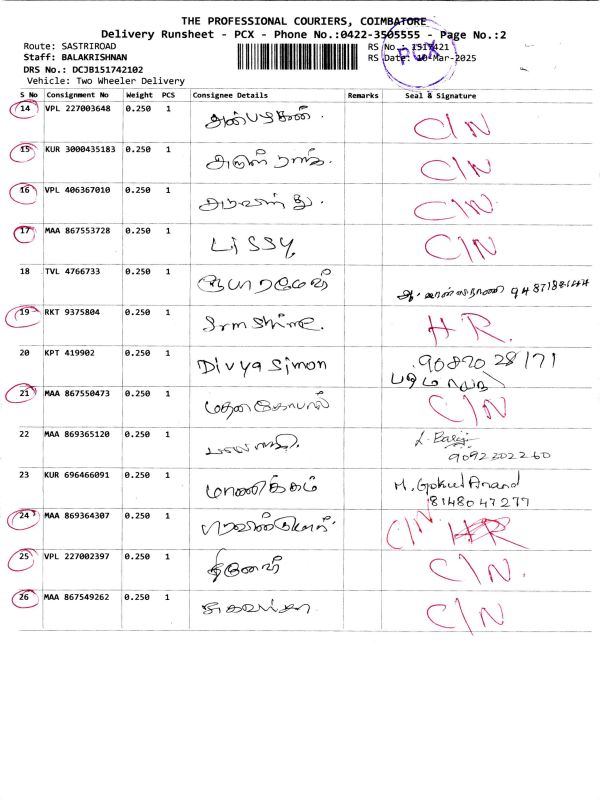 THE PROFESSIONAL COURIERS, COIMBATORE
Delivery Runsheet - PCX - Phone No.:0422-3505555 - Page No.:2
Route: SASTRIROAD
RS No.: 1517421
Staff: BALAKRISHNAN
RS Date: 10-Mar-2025
DRS No.: DCJB151742102
Vehicle: Two Wheeler Delivery
PCX
S No Consignment No Weight PCS Consignee Details Remarks Seal & Signature
14 VPL 227003648 0.250 1 அன்பழகன். C/N
15 KUR 3000435183 0.250 1 C/N
16 VPL 406367010 0.250 1 C/N
17 MAA 867553728 0.250 1 Lissy C/N
18 TVL 4766733 0.250 1
19 RKT 9375804 0.250 1 H R.
20 KPT 419902 0.250 1 Divya Simon 90870 28171
21 MAA 867550473 0.250 1 மதனகோபால் C/N
22 MAA 869365120 0.250 1 L. Balaji
9092202260
23 KUR 696466091 0.250 1 மாணிக்கம் M. Gokul Anand
8148047277
24 MAA 869364307 0.250 1 C/N HR
25 VPL 227002397 0.250 1 C/N.
26 MAA 867549262 0.250 1 C/N